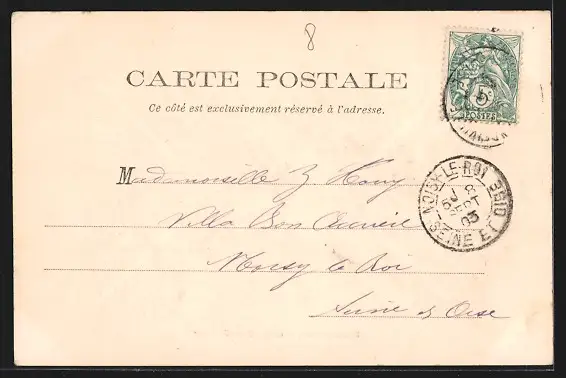 8
CARTE POSTALE
Ce côté est exclusivement réservé à l'adresse.
5c
POSTES
Mademoiselle
Villa Bon Accueil
Noisy le Roi
Seine et Oise
NOISY-LE-ROI
8
SEPT
03
SEINE ET OISE